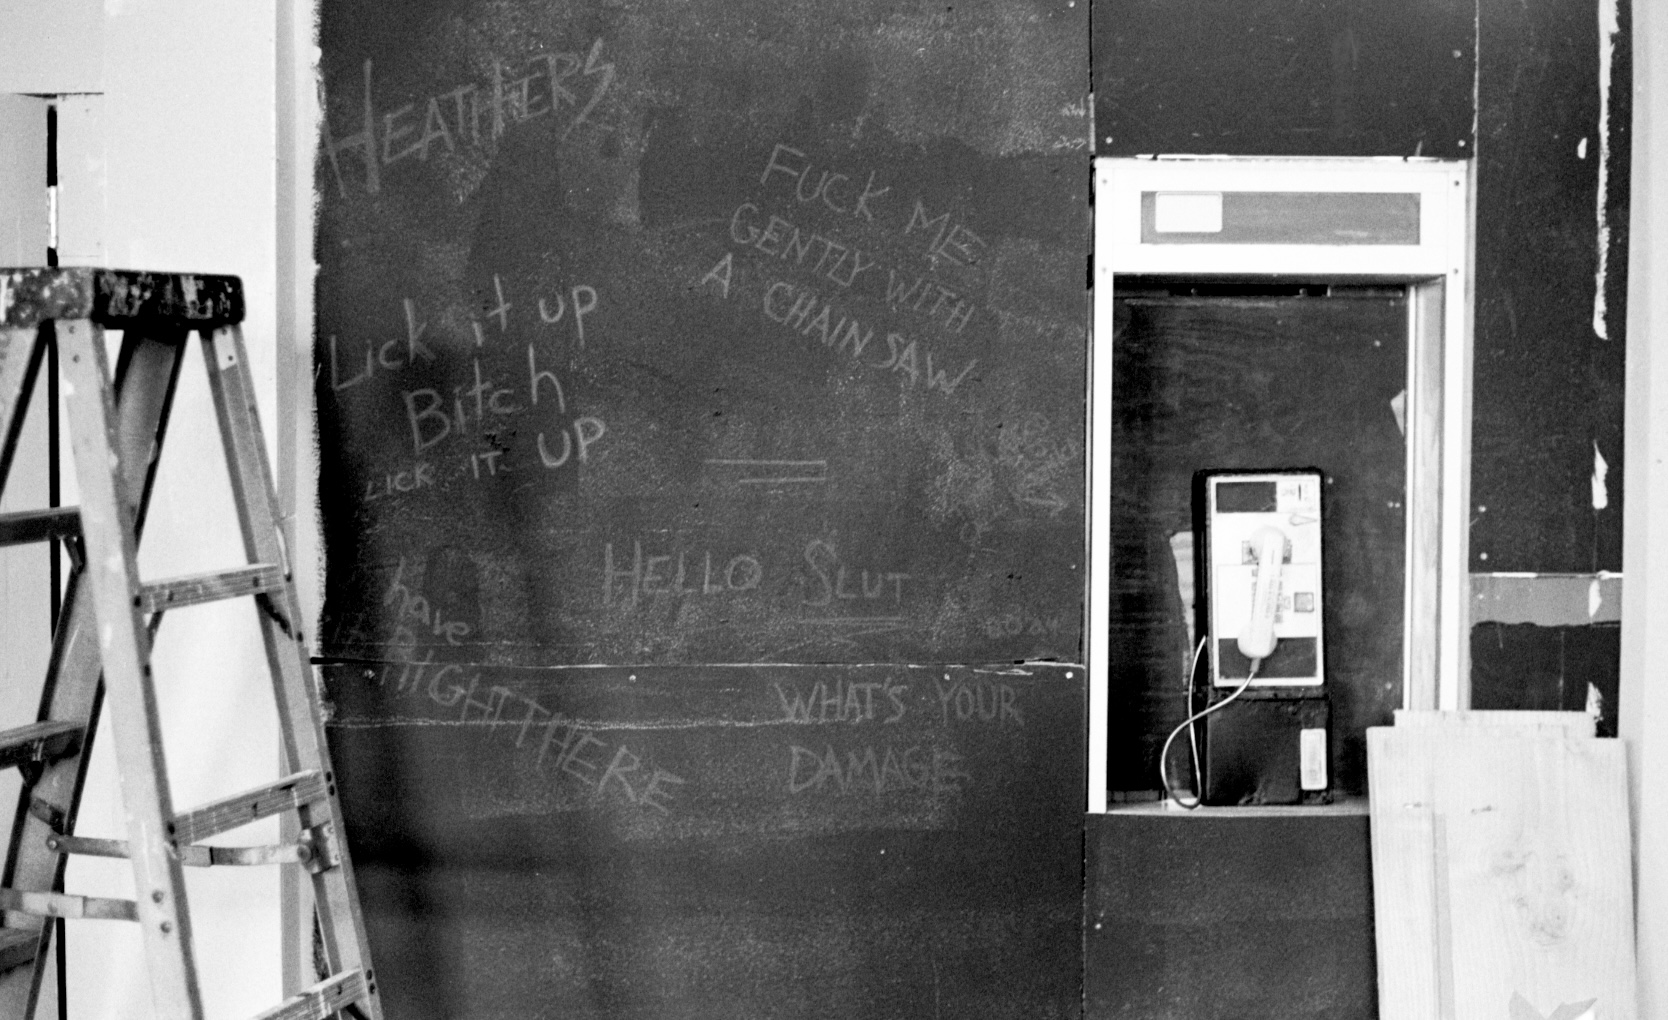 HEATHERS
FUCK ME
GENTLY WITH
A CHAIN SAW
Lick it up
Bitch
LICK IT UP
HELLO SLUT
have
RIGHT THERE
WHAT'S YOUR
DAMAGE